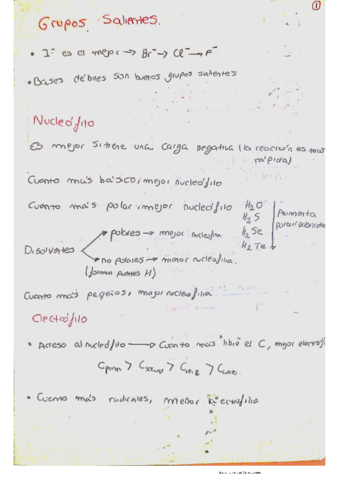 ①
Grupos Salientes.
• I⁻ es el mejor → Br⁻ → Cl⁻ → F⁻
• Bases débiles son buenos grupos salientes
Nucleófilo
Es mejor si tiene una carga negativa (la reacción es más
rápida)
Cuanto más básico, mejor nucleófilo
Cuanto más polar, mejor nucleófilo
H₂O
H₂S
H₂Se
H₂Te
Aumenta
polarizabilidad
Disolventes
polares → mejor nucleofilia
no polares → menor nucleofilia.
(forman puentes H)
Cuanto más pequeños, mayor nucleofilia
Electrófilo
• Acceso al nucleófilo → Cuanto más "libre" el C, mejor electrof.
C > C > C > C
• Cuanto más radicales, menor electrofilia